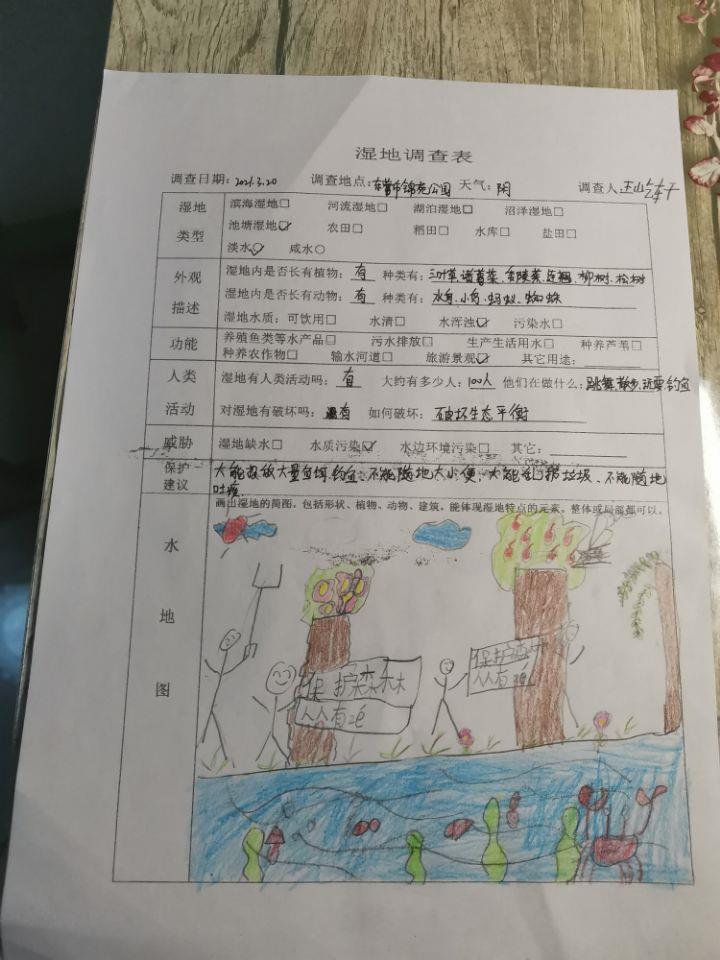 湿地调查表
调查日期:2021.3.20 调查地点:东营市锦苑公园 天气:阴 调查人:
湿地类型
滨海湿地□ 河流湿地□ 湖泊湿地□ 沼泽湿地□
池塘湿地☑ 农田□ 稻田□ 水库□ 盐田□
淡水☑ 咸水○
外观描述
湿地内是否长有植物:有 种类有:三叶草、诸葛菜、连翘、柳树、松树
湿地内是否长有动物:有 种类有:小鸟、蚂蚁、蜘蛛
湿地水质:可饮用□ 水清□ 水浑浊☑ 污染水□
功能
养殖鱼类等水产品□ 污水排放□ 生产生活用水□ 种养芦苇□
种养农作物□ 输水河道□ 旅游景观☑ 其它用途:
人类活动
湿地有人类活动吗:有 大约有多少人:100人 他们在做什么:跳舞、散步、玩耍、钓鱼
对湿地有破坏吗:有 如何破坏:破坏生态平衡
威胁
湿地缺水□ 水质污染☑ 水边环境污染□ 其它:
保护建议
大量鱼饵钓鱼、不能随地大小便、垃圾、不能随地
吐痰
水地图
画出湿地的简图,包括形状、植物、动物、建筑。能体现湿地特点的元素。整体或局部都可以。
保护森林
人人有
保护森林
人人有